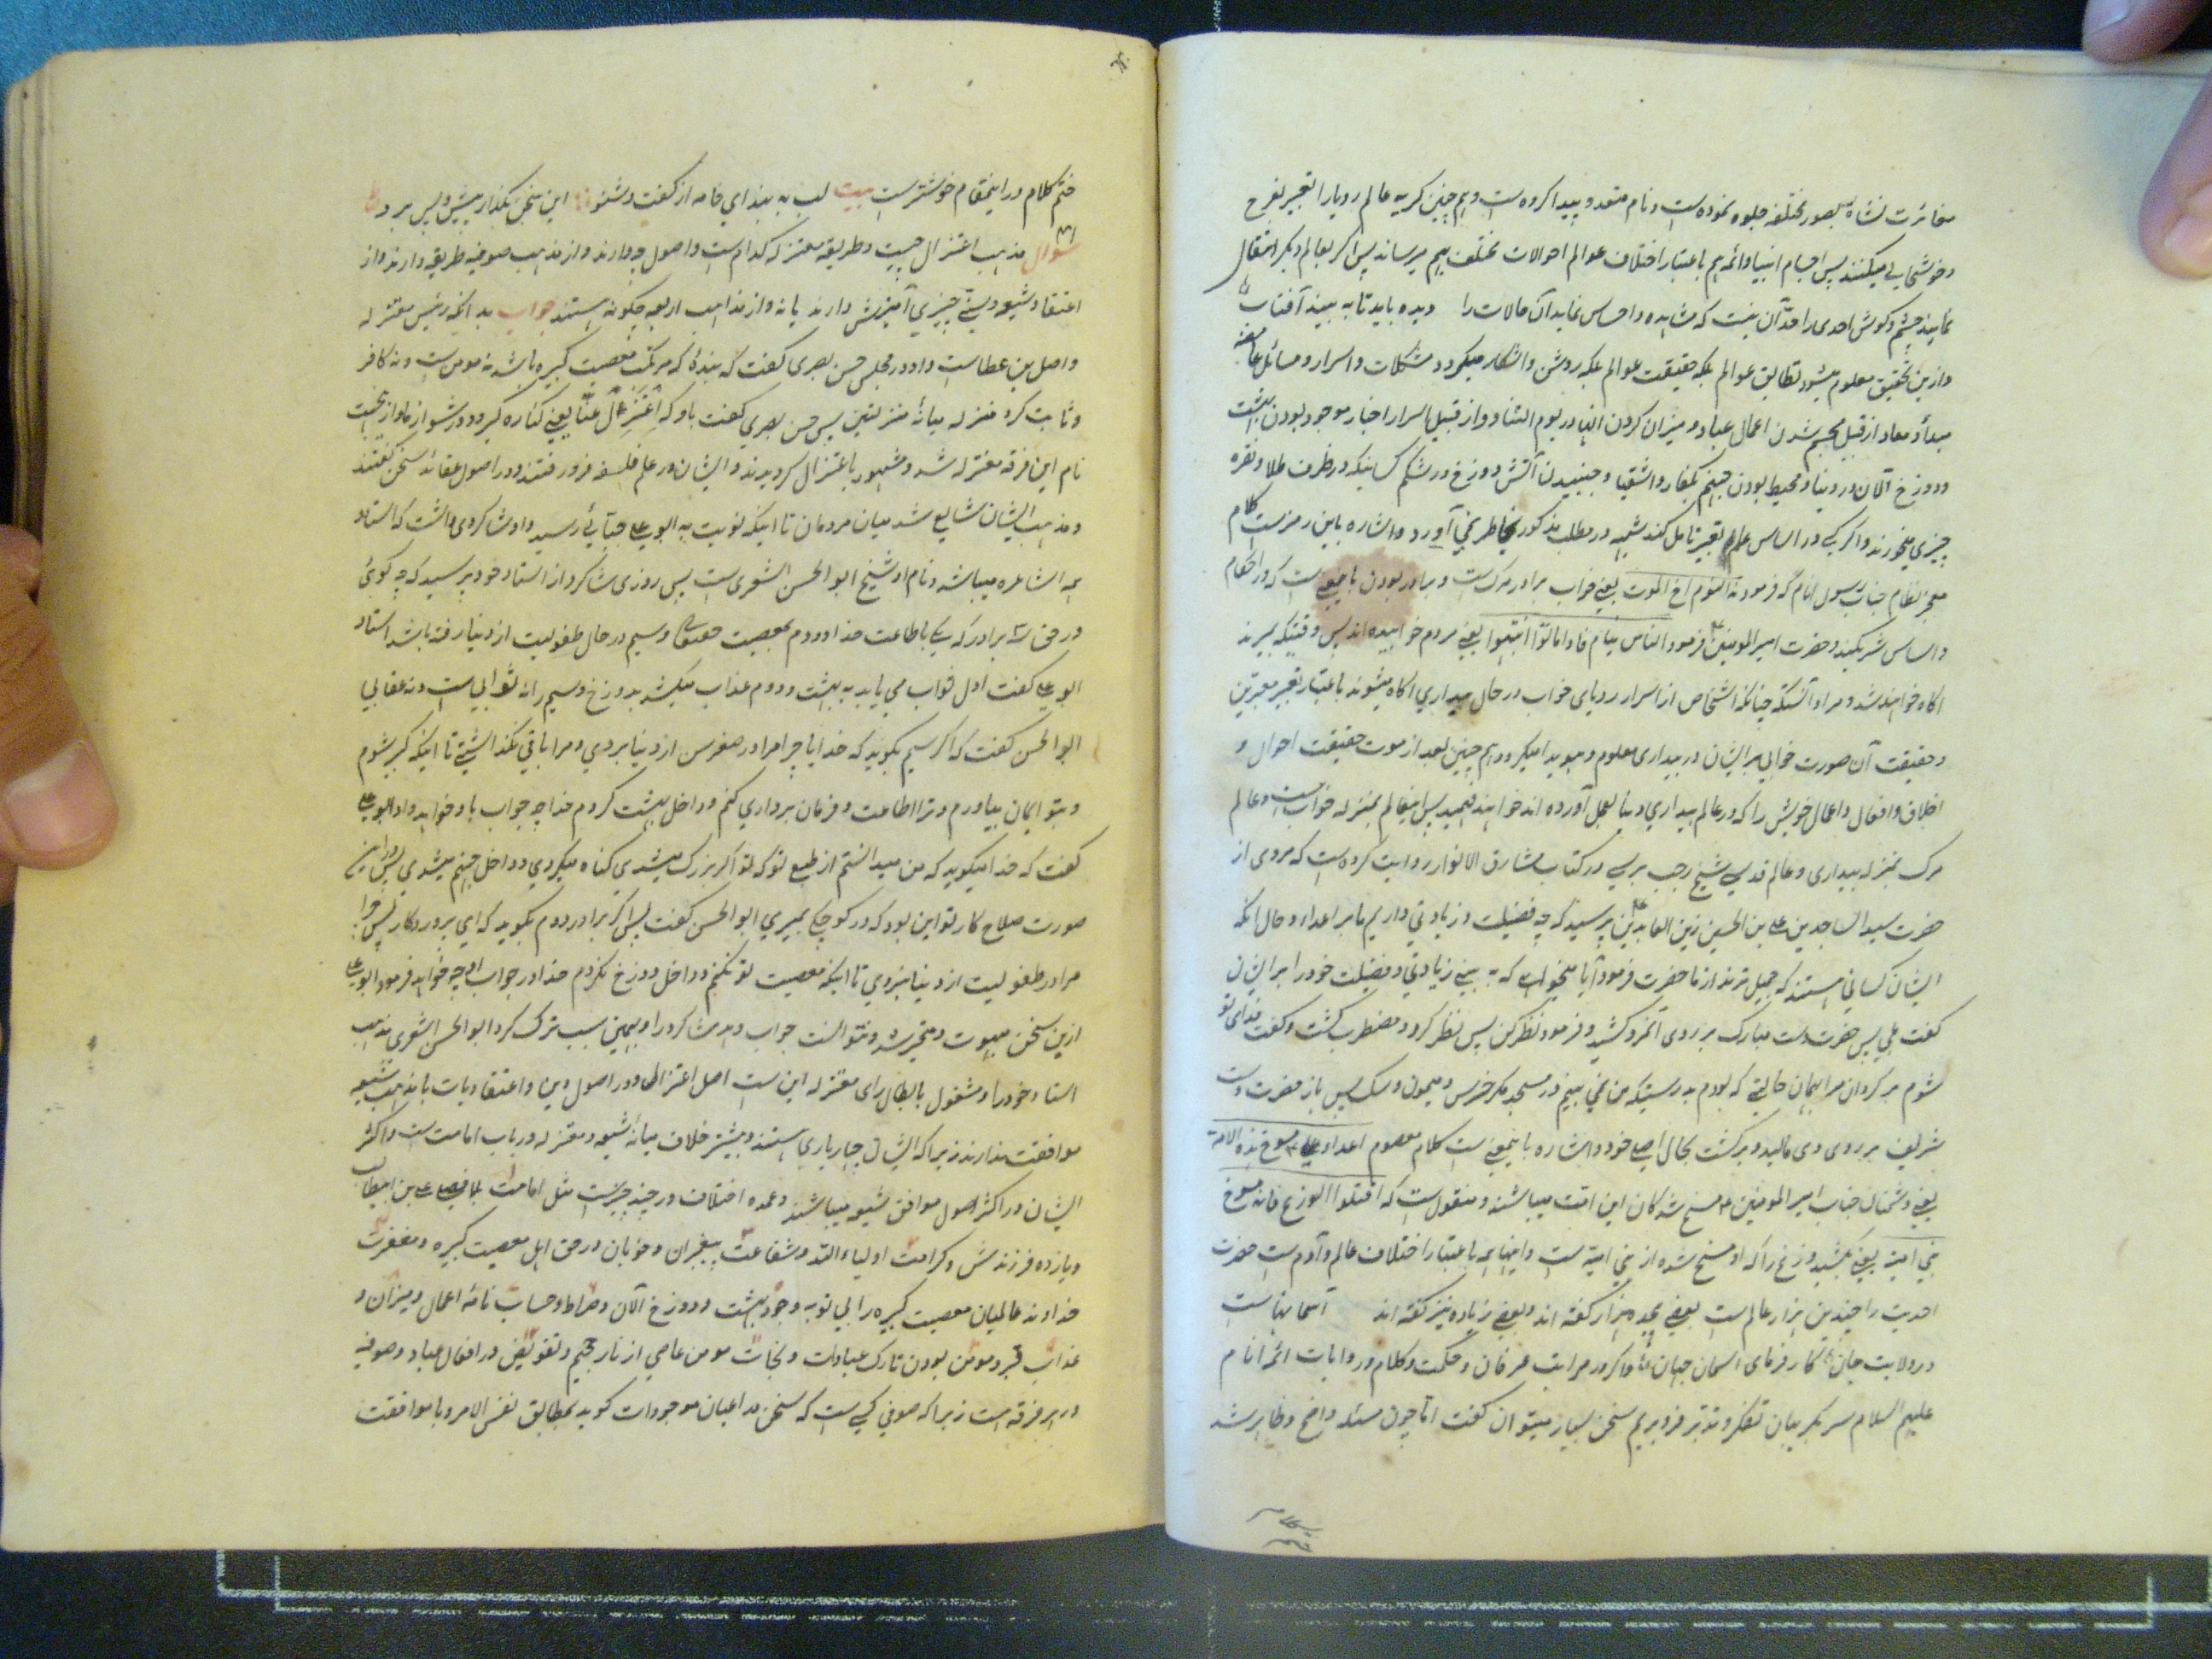 مغائرت نشاة بصور مختلفه جلوه نموده است و نام متعدد پیدا کرده است و هم چنین کریه عالم رویا را تعبیر بفرح
و خوشحالی میکنند پس اجسام انبیا و ائمه هم باعتبار اختلاف عوالم احوالات مختلف بهم میرساند پس اگر بعالم دیگر انتقال
نمایند چشم و گوش احدی را حد آن نیست که مشاهده و احساس نماید آن حالات را دیده باید تا به بیند آفتاب
و ازین تحقیق معلوم میشود تطابق عوالم بلکه حقیقت عوالم بلکه روشن و آشکار میگردد مشکلات و اسرار و مسائل غامضه
مبدأ و معاد از قبیل مجسم شدن اعمال عباد و میزان کردن آنها در یوم التناد و از قبیل اسرار اخبار موجود بودن بهشت
و دوزخ الآن در دنیا و محیط بودن جهنم بکفار و اشقیا و جنبیدن آتش دوزخ در شکم کسانیکه در ظرف طلا و نقره
چیزی میخورند و اگر کسی در اساس علم تعبیر تامل کند شبهه در مطلب مذکور بخاطر نمی آورد و اشاره باین رمزست کلام
معجز نظام جناب رسول انام که فرموده النوم اخ الموت یعنی خواب برادر مرگ است و برادر بودن باینمعنی است که در احکام
و اساس شریکند و حضرت امیر المومنین فرمود الناس نیام فاذا ماتوا انتبهوا یعنی مردم خوابیده اند پس وقتیکه بمیرند
آگاه خواهند شد و مراد آنستکه چنانکه اشخاص از اسرار رویای خواب در حال بیداری آگاه میشوند باعتبار تعبیر معبرین
و حقیقت آن صورت خوابی بر ایشان در بیداری معلوم و هویدا میگردد هم چنین بعد از موت حقیقت احوال و
اخلاق و افعال و اعمال خویش را که در عالم بیداری دنیا بعمل آورده اند خواهند فهمید پس اینعالم بمنزله خواب است و عالم
مرگ بمنزله بیداری و عالم قدسی شیخ رجب برسی در کتاب مشارق الانوار روایت کرده است که مردی از
حضرت سید الساجدین علی بن الحسین زین العابدین پرسید که چه فضیلت و زیادتی داریم ما بر اعداء و حال آنکه
ایشان کسانی هستند که جمیل ترند از ما حضرت فرمود آیا میخواهی که به بینی زیادتی و فضیلت خود را بر ایشان
گفت بلی پس حضرت دست مبارک بر روی آنمرد کشید و فرمود نظر کن پس نظر کرد و مضطرب گشت و گفت فدای تو
شوم برگردان مرا بهمان حالتی که بودم بدرستیکه من نمی بینم در مسجد مگر خرس و میمون و سگ پس باز حضرت دست
شریف بر روی وی مالید و برگشت بحال اصلی خود و اشاره باینمعنی است کلام معصوم اعداء علی مسوخ هذه الامة
یعنی دشمنان جناب امیر المومنین مسخ شدگان این امت میباشند و منقول است که اقتلوا الوزغ فانه مسوخ
بنی امیة یعنی بکشید وزغ را که او مسخ شده از بنی امیه است و اینها همه باعتبار اختلاف عالم و آدم است حضرت
احدیت را چندین هزار عالم است بعضی هجده هزار گفته اند و بعضی زیاده نیز گفته اند آسمانهاست
در ولایت جان کارفرمای آسمان جهان و اگر در مراتب عرفان و حکمت و کلام و روایات ائمه انام
علیهم السلام سر بگریبان تفکر و تدبر فرو بریم سخن بسیار میتوان گفت اما چون مسئله واضح و ظاهر شد
ختم کلام در اینمقام خوشترست بیت لب به بند ای خامه از گفت و شنود این سخن بگذار پیش و پس بر
سوال مذهب اعتزال چیست و طریقه معتزله کدام است و اصول چه دارند و از مذهب صوفیه طریقه دارند و از
اعتقاد شیعه و سنی چیزی آمیزش دارند یا نه و از مذاهب اربعه چگونه هستند جواب بدانکه رئیس معتزله
واصل بن عطاست و او در مجلس حسن بصری گفت که بندۀ که مرتکب معصیت کبیره باشد نه مومن است و نه کافر
و ثابت کرد منزله میانۀ منزلتین پس حسن بصری گفت باو که اعتزل عنا یعنی کناره گیر و دور شو از ما و از ینجهت
نام این فرقه معتزله شد و مشهور باعتزال گردیدند و ایشان در علم فلسفه فرو رفتند و در اصول عقائد سخن گفتند
و مذهب ایشان شایع شد میان مردمان تا اینکه نوبت به ابو علی جبائی رسید و او شاگردی داشت که استاد
همه اشاعره میباشد و نام او شیخ ابو الحسن اشعری است پس روزی شاگرد از استاد خود پرسید که چه گوئی
در حق سه برادر که یکی باطاعت خدا و دوم بمعصیت و سیم در حال طفولیت از دنیا رفته باشد استاد
ابو علی گفت اول ثواب می یابد به بهشت و دوم عذاب میکشد بدوزخ و سیم را نه ثوابی است و نه عقابی
ابو الحسن گفت که اگر سیم بگوید که خدایا چرا مرا در صغر سن از دنیا بردی و مرا باقی نگذاشتی تا اینکه کبیر شوم
و بتو ایمان بیاورم و ترا اطاعت و فرمان برداری کنم و داخل بهشت گردم خدا چه جواب باو خواهد داد ابو علی
گفت که خدا میگوید که من میدانستم از طبع تو که تو اگر بزرگ میشدی گناه میکردی و داخل جهنم میشدی پس در این
صورت صلاح کار تو این بود که در کوچکی بمیری ابو الحسن گفت پس اگر برادر دوم بگوید که ای پروردگار پس چرا
مرا در طفولیت از دنیا نبردی تا اینکه معصیت تو نکنم و داخل دوزخ نگردم خدا در جواب او چه خواهد فرمود ابو علی
ازین سخن مبهوت و متحیر شد و نتوانست جواب دهد شاگرد را و بهمین سبب ترک کرد ابو الحسن اشعری مذهب
استاد خود را و مشغول بابطال رای معتزله این ست اصل اعتزال و در اصول دین و اعتقادیات با مذهب شیعه
موافقت ندارند زیرا که ایشان چار یاری هستند و بیشتر خلاف میانۀ شیعه و معتزله در باب امامت است و اکثر
ایشان در اکثر اصول موافق شیعه میباشند و عمده اختلاف در چند چیزست مثل امامت بلا فصل علی بن ابیطالب
و یازده فرزندش و کرامت اولیاء الله و شفاعت پیغمبران و خوبان در حق اهل معصیت کبیره و مغفرت
خداوند عالمیان معصیت کبیره را بی توبه و وجود بهشت و دوزخ الآن و صراط و حساب نامۀ اعمال و میزان و
عذاب قبر و مومن بودن تارک عبادات و نجات مومن عاصی از نار جحیم و تفویض در افعال عباد و صوفیه
در هر فرقه است زیرا که صوفی کسی ست که سخن در اعیان موجودات گوید بمطابق نفس الامر و با موافقت